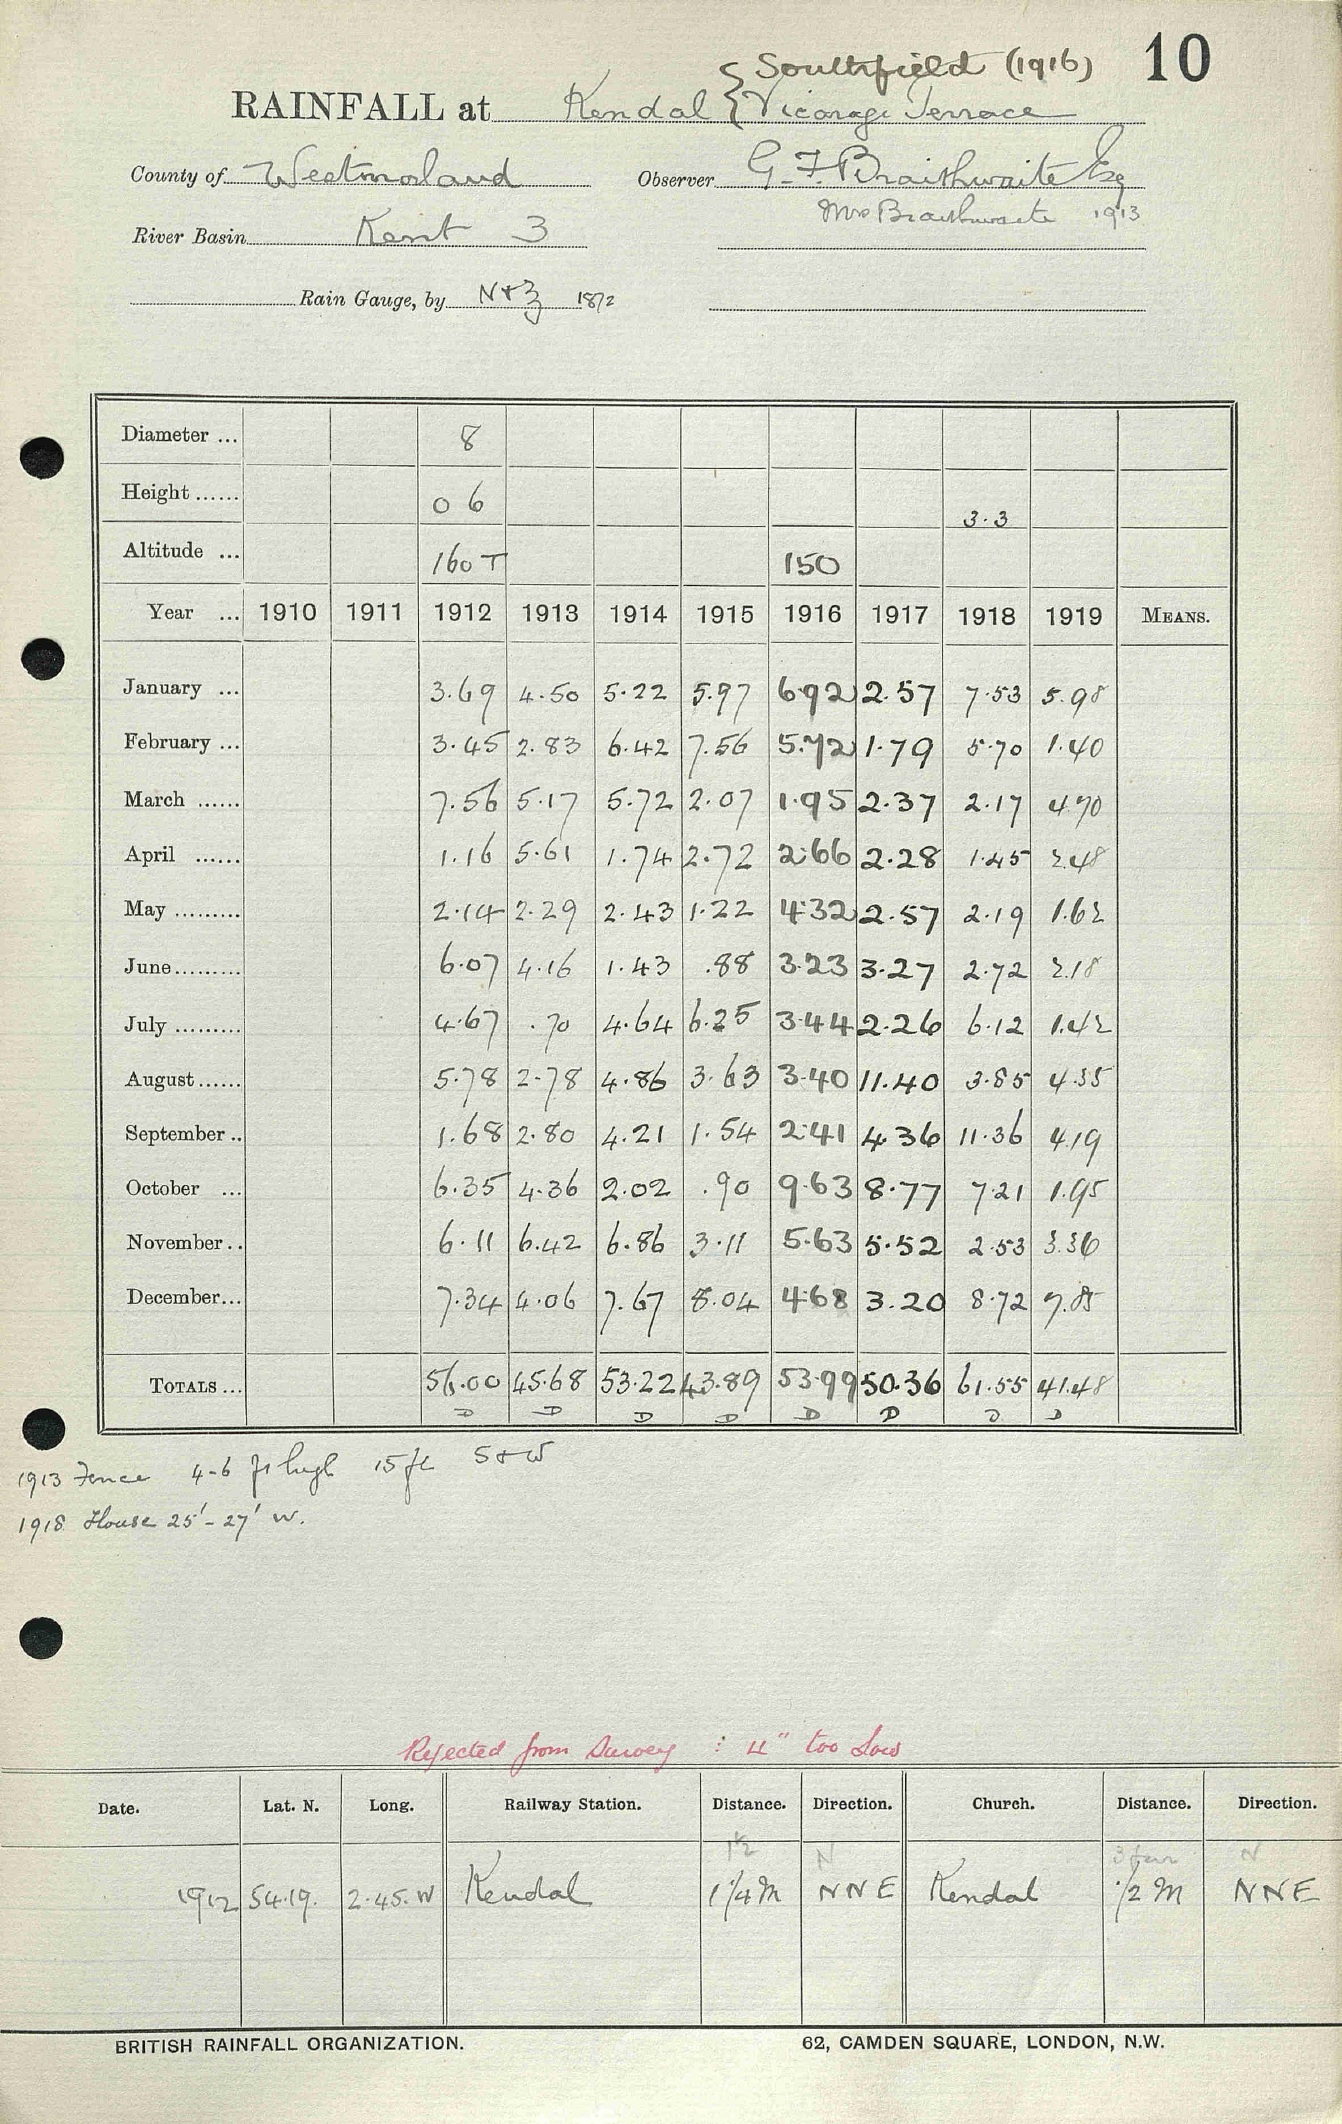 10
Southfield (1916)
RAINFALL at Kendal { Vicarage Terrace
County of Westmorland Observer G. F. Braithwaite Esq
Mrs Braithwaite 1913
River Basin Kent 3
Rain Gauge, by N & Z 1872
Diameter ... 8
Height ...... 0 6 3.3
Altitude ... 160 T 150
Year ... 1910 1911 1912 1913 1914 1915 1916 1917 1918 1919 MEANS.
January ... 3.69 4.50 5.22 5.97 6.92 2.57 7.53 5.98
February ... 3.45 2.83 6.42 7.56 5.72 1.79 5.70 1.40
March ...... 7.56 5.17 5.72 2.07 1.95 2.37 2.17 4.70
April ...... 1.16 5.61 1.74 2.72 2.66 2.28 1.45 2.48
May ......... 2.14 2.29 2.43 1.22 4.32 2.57 2.19 1.62
June ......... 6.07 4.16 1.43 .88 3.23 3.27 2.72 2.18
July ......... 4.67 .70 4.64 6.25 3.44 2.26 6.12 1.42
August ...... 5.78 2.78 4.86 3.63 3.40 11.40 3.85 4.35
September .. 1.68 2.80 4.21 1.54 2.41 4.36 11.36 4.19
October ... 6.35 4.36 2.02 .90 9.63 8.77 7.21 1.95
November .. 6.11 6.42 6.86 3.11 5.63 5.52 2.53 3.36
December... 7.34 4.06 7.67 8.04 4.68 3.20 8.72 7.85
TOTALS ... 56.00 45.68 53.22 43.89 53.99 50.36 61.55 41.48
D D D D D D D D
1913 Fence 4-6 ft high 15 ft S & W
1918 House 25' - 27' W.
Rejected from Survey : 4" too Low
Date. Lat. N. Long. Railway Station. Distance. Direction. Church. Distance. Direction.
1½ N 3 fur N
1912 54.19. 2.45.W Kendal 1¼ M NNE Kendal ½ M NNE
BRITISH RAINFALL ORGANIZATION. 62, CAMDEN SQUARE, LONDON, N.W.